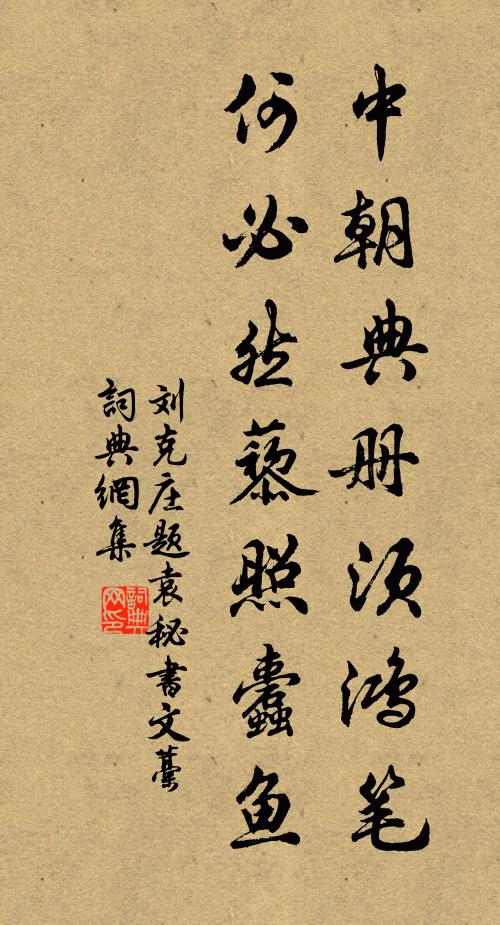 中朝典册须鸿笔
何必然藜照蠹鱼
刘克庄题袁秘书文藁
詞典網集
詞典
网印